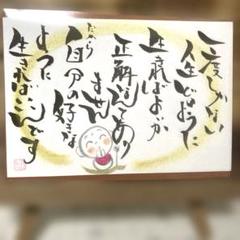 一度しかない
人生どのように
生きればよいか
正解なんてあり
ません
だから
自分の好きな
ように
生きればいいんです